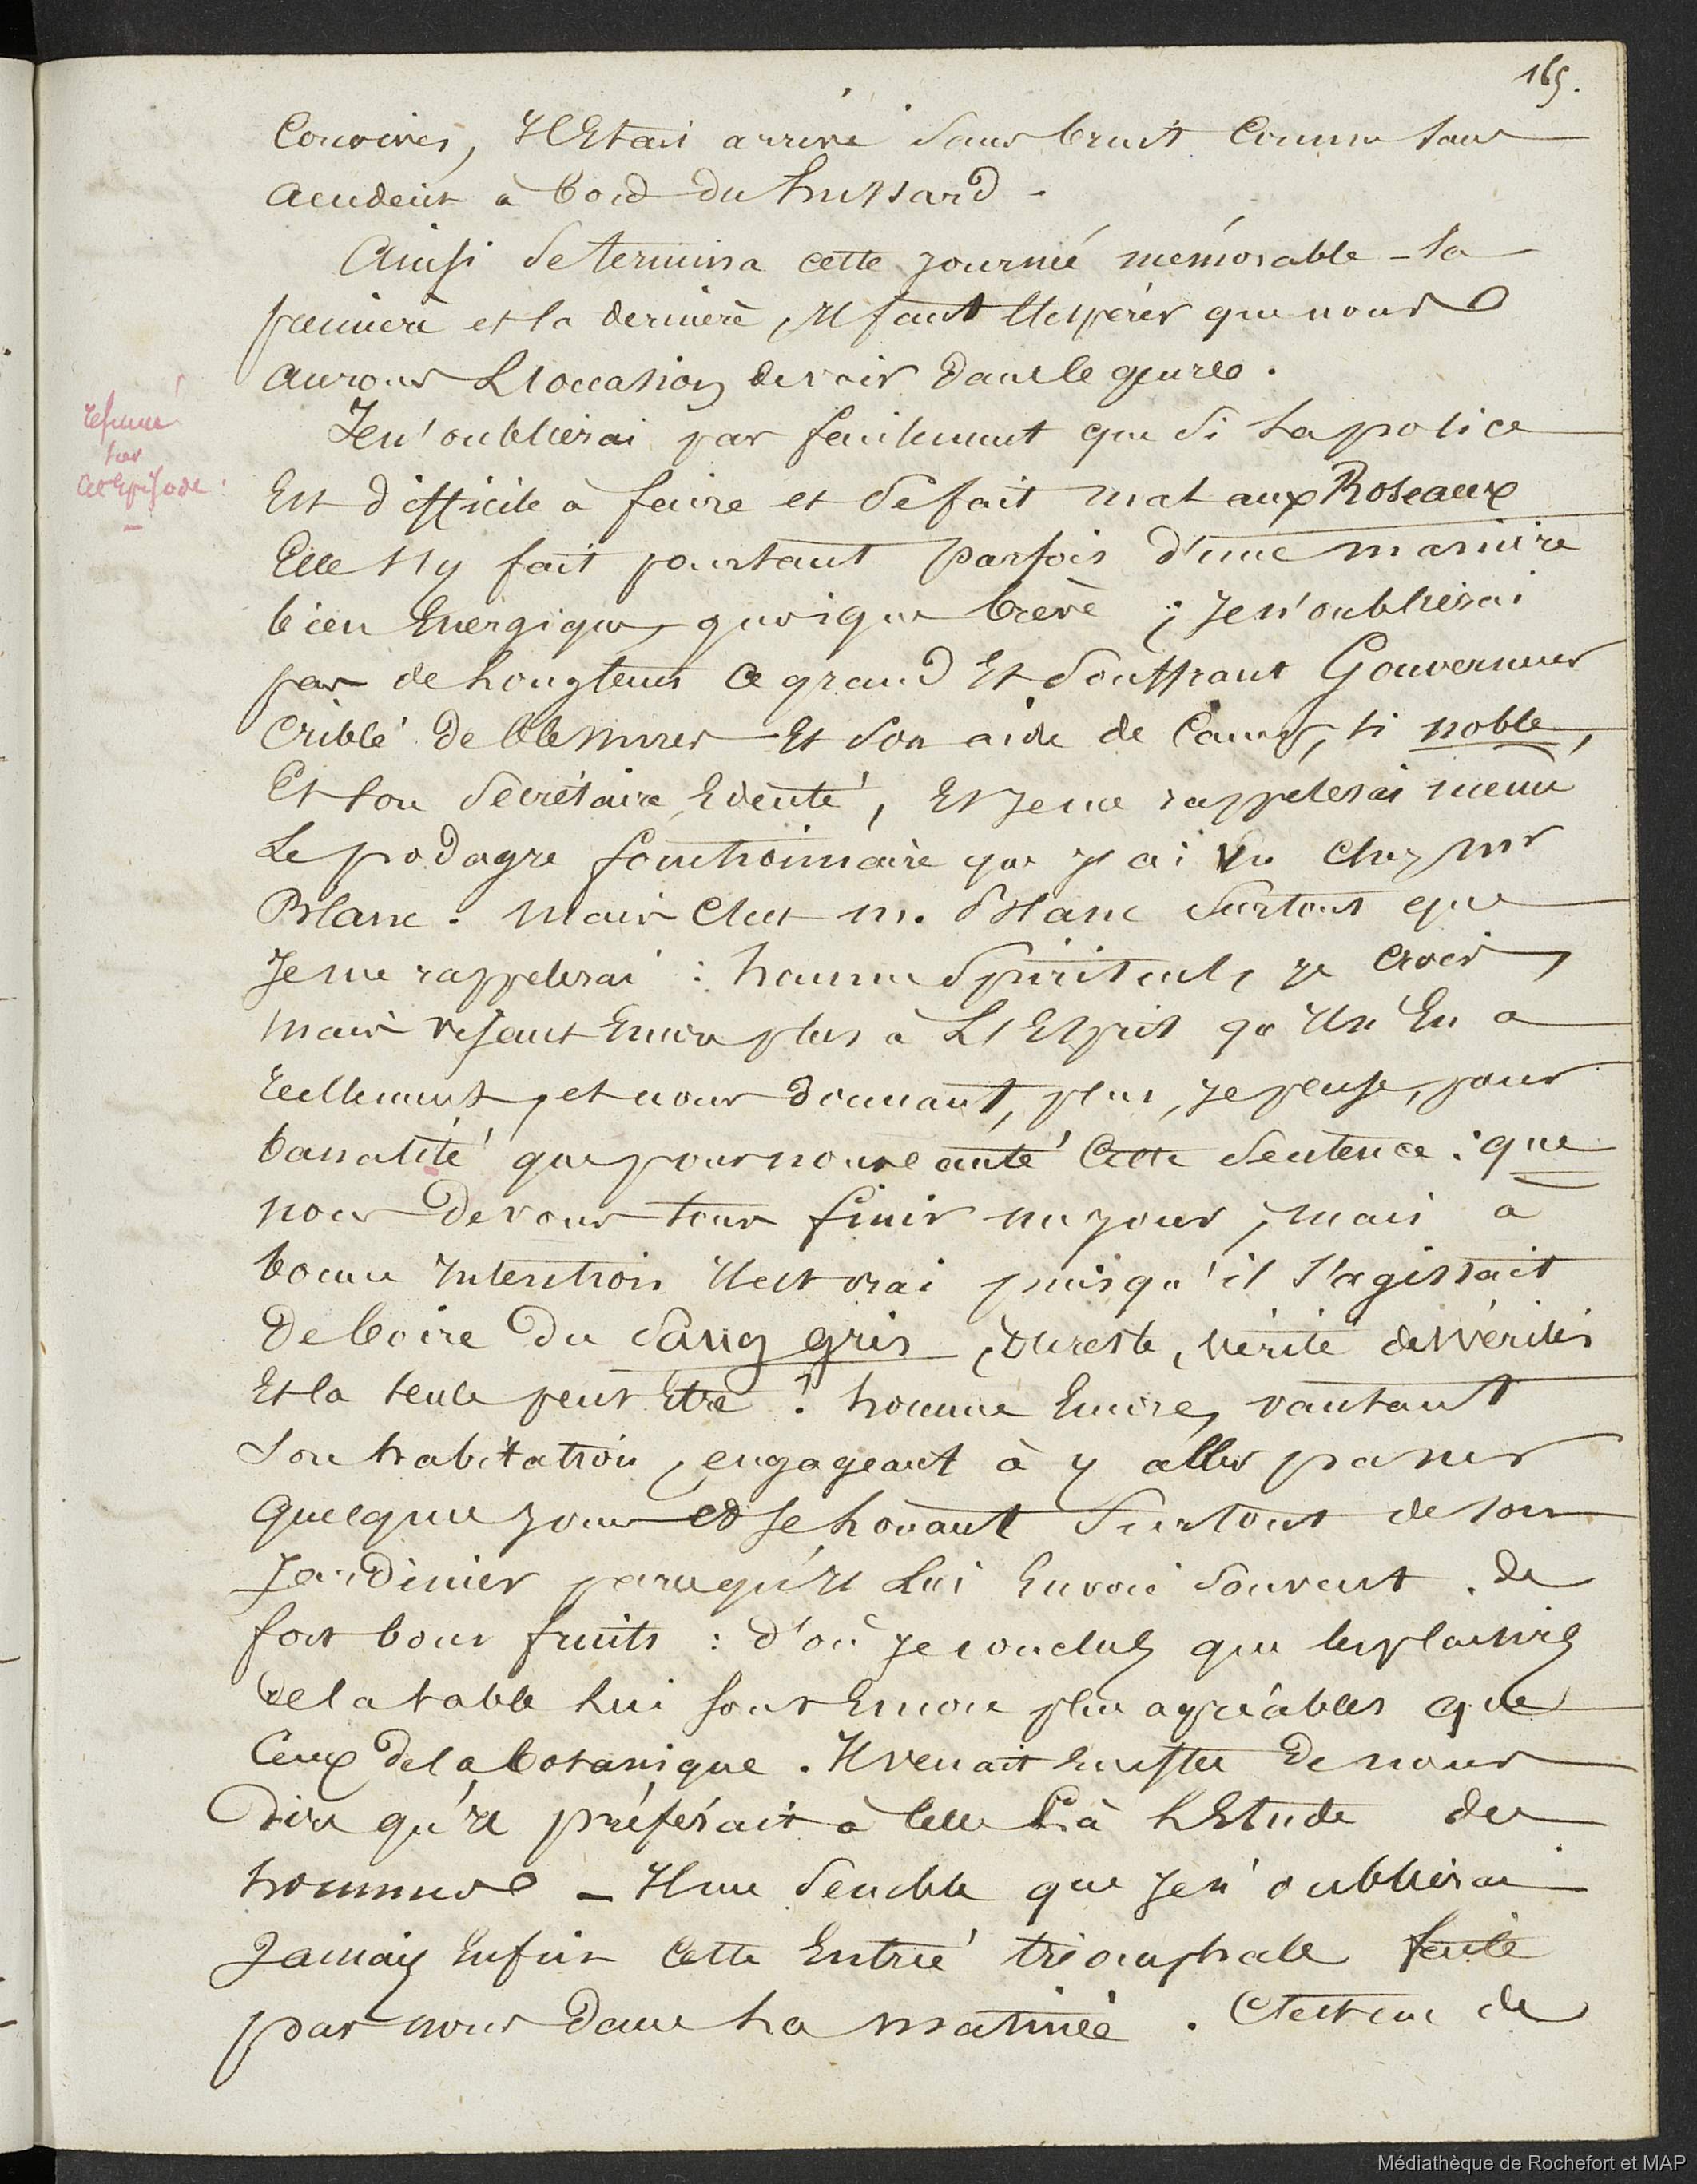 165.
Convives, Il Etait arrivé sans bruit Comme sans
accident à bord du hussard -
Ainsi se termina cette journée mémorable - la
premiere et la derniere, il faut l'espérer que nous
aurons L'occasion de voir dans le genre.
resumé
sur
cet épisode.
Je n'oublierai pas facilement que si la police
Est difficile à faire et se fait mal aux Roseaux
Elle s'y fait pourtant parfois d'une maniere
bien Energique, quoique breve ; Je n'oublierai
pas de longtems ce grand Et souffrant Gouverneur
Criblé de blessures Et son aide de Camp, si noble,
Et son secrétaire Eventé, Et je me rappelerai même
Le podagre fonctionnaire que j'ai vu chez Mr
Blanc. Mais C'est m. Blanc surtout que
Je me rappelerai : homme spirituel, je crois,
mais visant Encore plus à L'Esprit qu'il n'En a
reellement, et nous donnant, plus, je pense, pour
banalité que pour nouveauté Cette sentence : que
nous devons tous finir un jour, mais à
bonne intention il est vrai puisqu'il s'agissait
de boire du sang gris, Du reste, verité des vérités
Et la seule peut Etre ! homme Encore, vantant
son habitation, engageant à y aller passer
quelques jours et se louant surtout de son
Jardinier parcequ'il Lui Envoie souvent de
fort bons fruits : d'où je conclus que les plaisirs
de la table Lui sont Encore plus agréables que
Ceux de la botanique. Il venait Ensuite de nous
dire qu'il préférait à celle là L'Etude des
hommes - Il me semble que je n'oublierai
Jamais Enfin Cette Entrée triomphale faite
par nous dans la matinée. C'est un de
Médiathèque de Rochefort et MAP